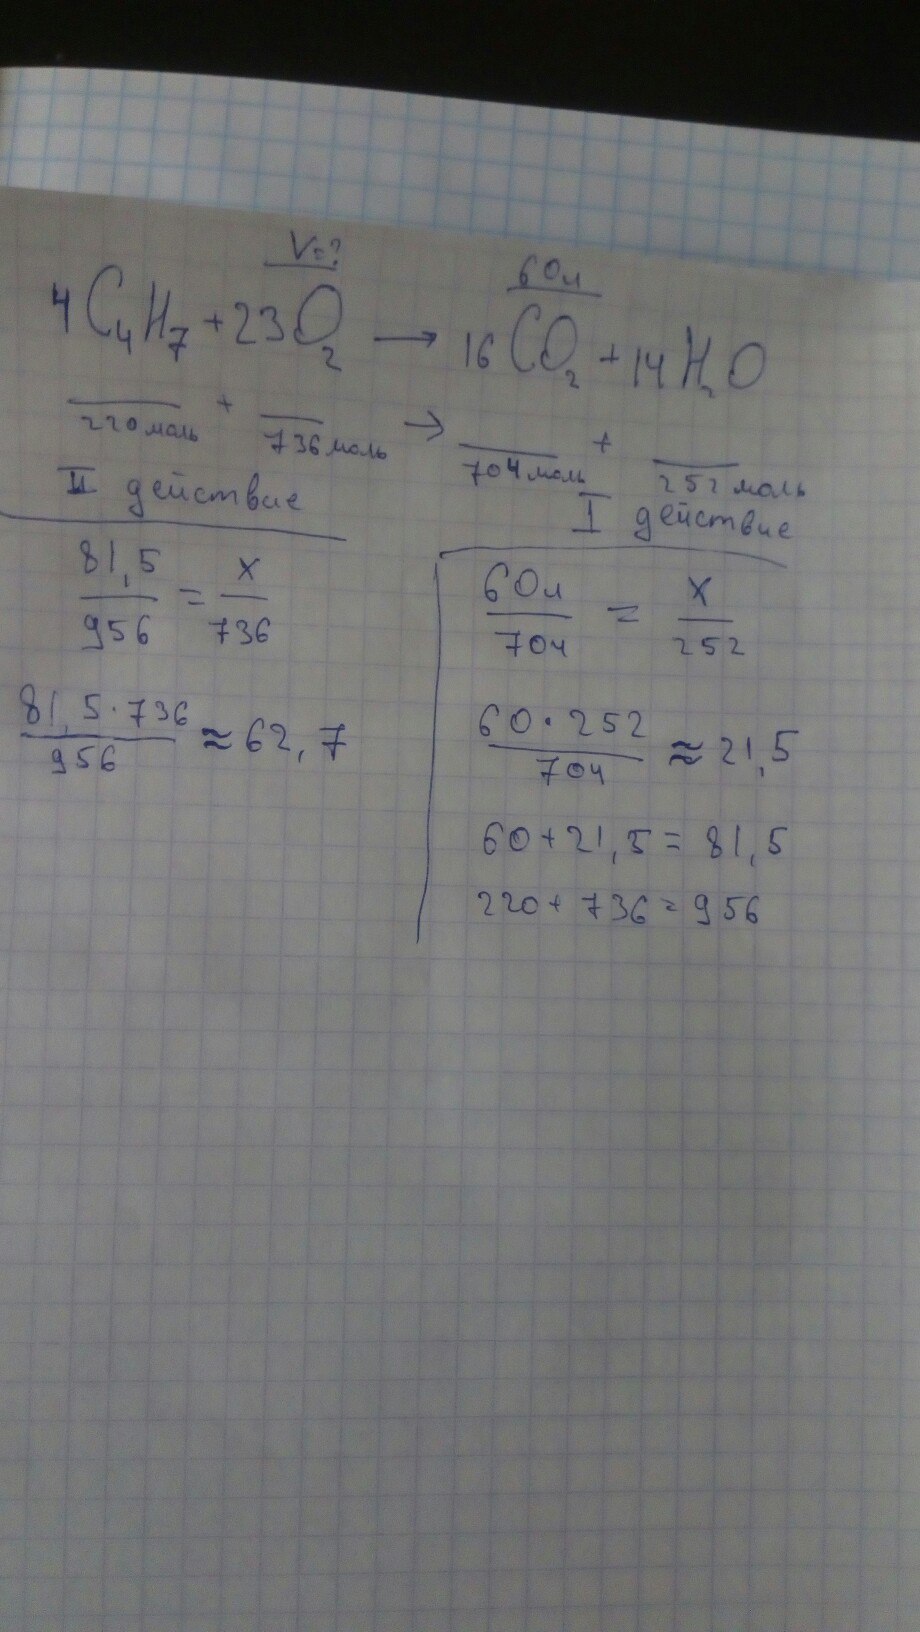 V=? 60л
4C₄H₇ + 23O₂ → 16CO₂ + 14H₂O
220моль + 736моль → 704моль + 252моль
II действие
81,5/956 = x/736
81,5·736/956 ≈ 62,7
I действие
60л/704 = x/252
60·252/704 ≈ 21,5
60+21,5=81,5
220+736=956